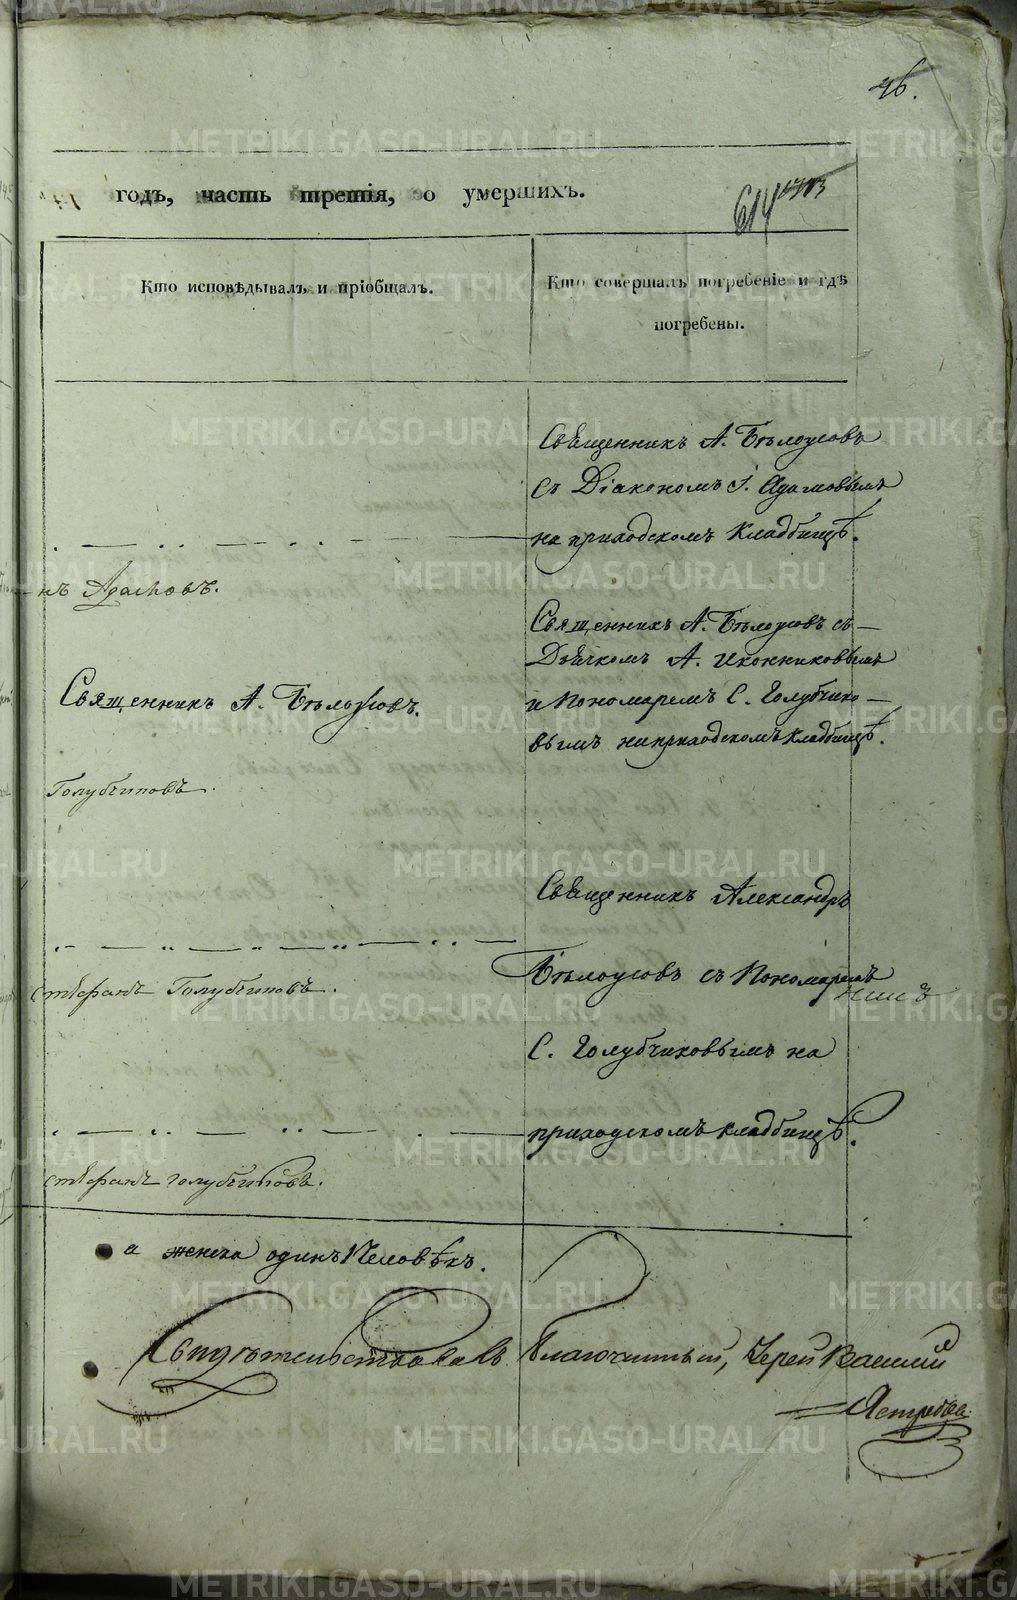 46.
годъ, часть третія, о умершихъ.
614
Кто исповѣдывалъ и пріобщалъ.
Кто совершалъ погребеніе и гдѣ
погребены.
Священникъ А. Бѣлоусовъ
съ Діакономъ І. Адамовымъ
на приходскомъ кладбищѣ.
нъ Адамовъ.
Священникъ А. Бѣлоусовъ съ
Дьячкомъ А. Иконниковымъ
Священникъ А. Бѣлоусовъ.
и Пономаремъ С. Голубчико-
вымъ на приходскомъ кладбищѣ.
Голубчиковъ.
Священникъ Александръ
Бѣлоусовъ съ Пономаремъ
Стефанъ Голубчиковъ.
С. Голубчиковымъ на
приходскомъ кладбищѣ.
Стефанъ Голубчиковъ.
а женска одинъ человѣкъ.
Свидѣтельствовалъ Благочинный, Іерей Василій
Ястребовъ
METRIKI.GASO-URAL.RU